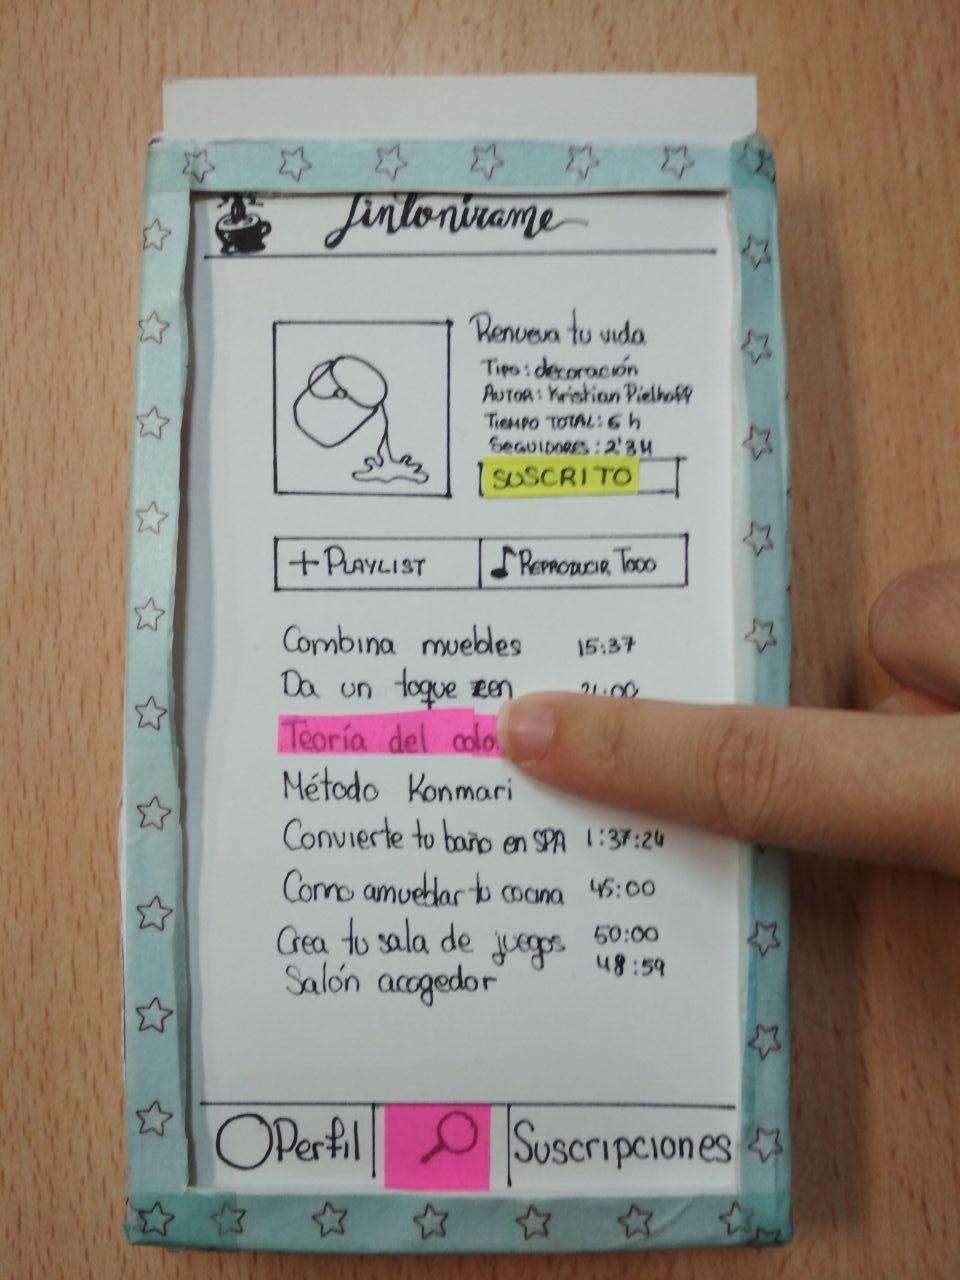 Sintonízame
Renueva tu vida
Tipo: decoración
AUTOR: Kristian Pielhoff
TIEMPO TOTAL: 6 h
SEGUIDORES: 2'3M
SUSCRITO
+ PLAYLIST
REPRODUCIR TODO
Combina muebles 15:37
Da un toque zen
Teoría del
Método Konmari
Convierte tu baño en SPA 1:37:24
Como amueblar tu cocina 45:00
Crea tu sala de juegos 50:00
Salón acogedor 48:59
Perfil
Suscripciones